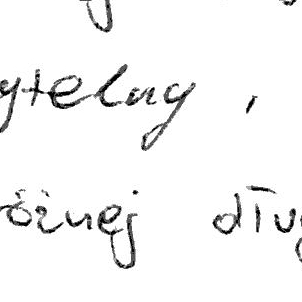 ytelny,
óżnej dłu